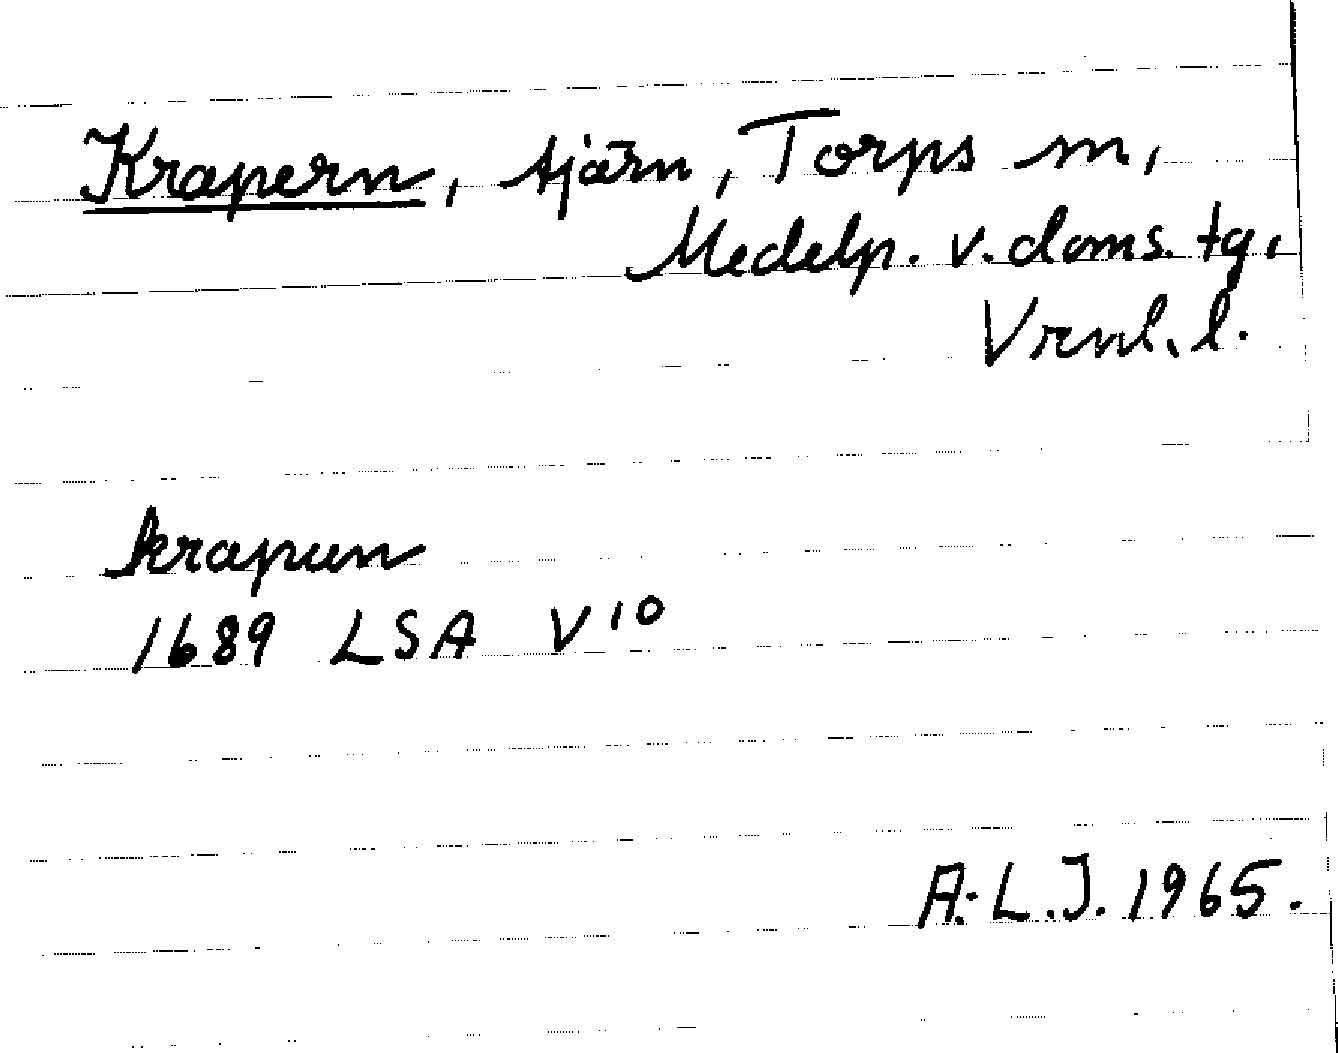 Krapern, tjärn, Torps sn,
Medelp. v. doms. tg,
Vrnl. l.
krapun
1689 LSA V 10
A.-L.J. 1965.